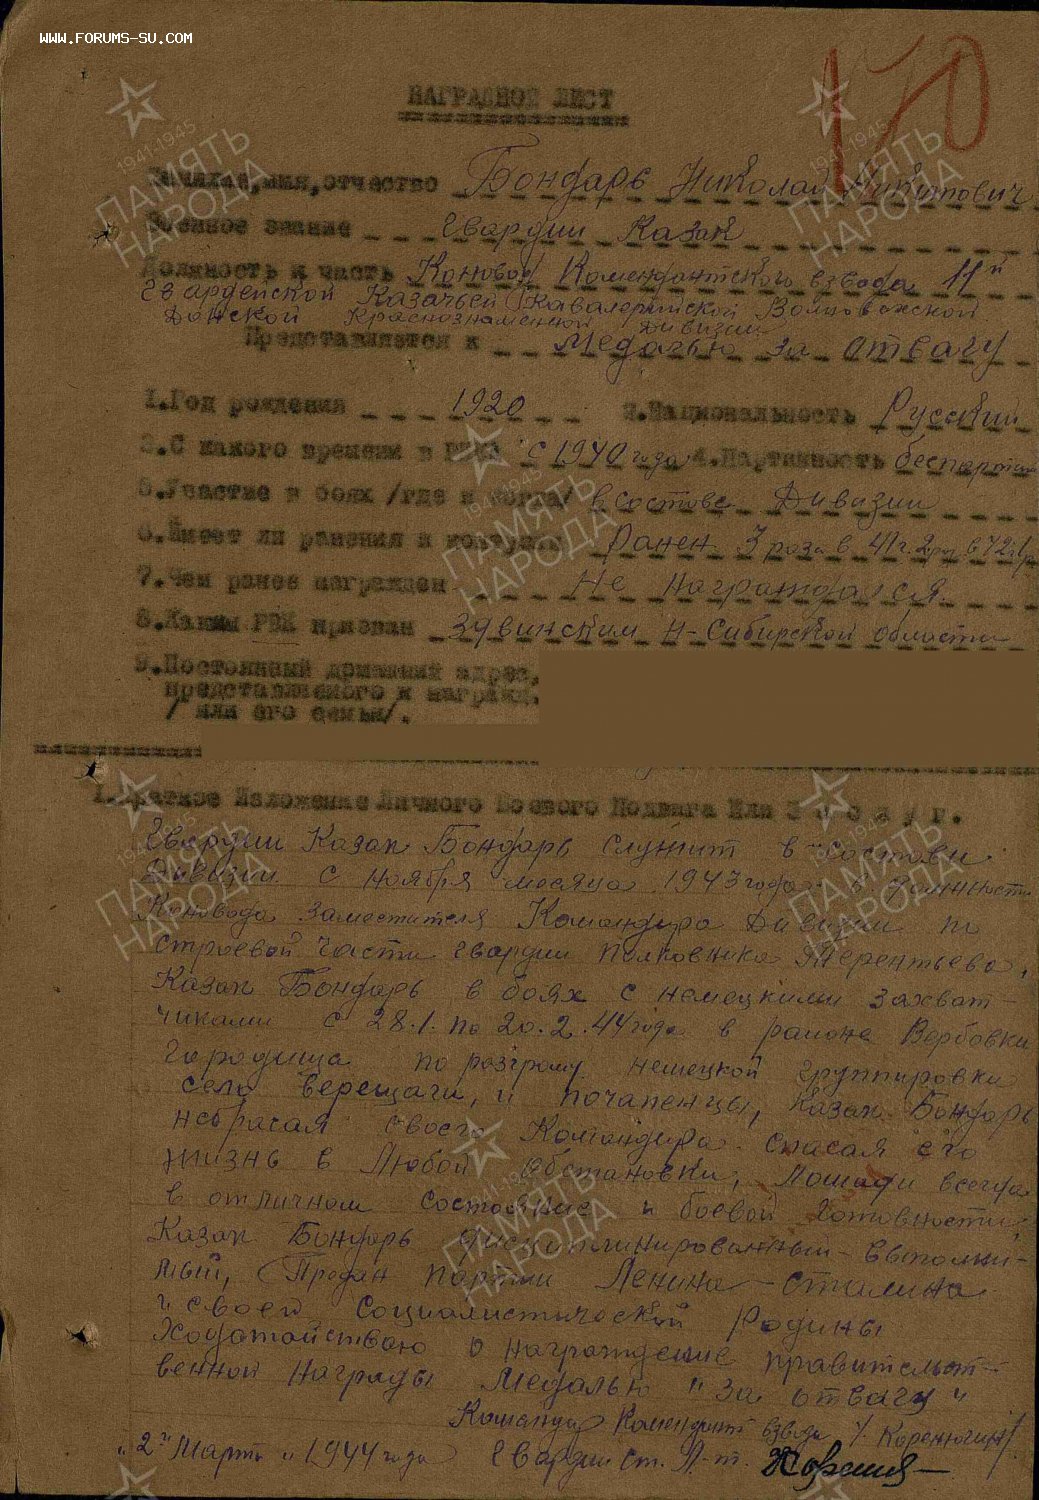 WWW.FORUMS-SU.COM
170
НАГРАДНОЙ ЛИСТ
Фамилия,имя,отчество Бондарь Николай Никитович
Военное звание Гвардии Казак
Должность и часть Коновод Комендантского взвода 11й
Гвардейской Казачьей Кавалерийской Волновахской
Донской Краснознаменной Дивизии
Представляется к Медалью за отвагу
1.Год рождения 1920 2.Национальность Русский
3.С какого времени в РККА с 1940 года 4.Партийность беспартий
5.Участие в боях /где и когда/ в составе Дивизии
6.Имеет ли ранения и контузии Ранен 3 раза в 41г. 2 раз в 42г 1 р
7.Чем ранее награжден Не награждался
8.Каким РВК призван Здвинским Н-Сибирской области
9.Постоянный домашний адрес,
представляемого к награжд.
/ или его семьи/.
1.Краткое Изложение Личного Боевого Подвига Или З а с л у г.
Гвардии Казак Бондарь служит в составе
Дивизии с ноября месяца 1943 года в должности
Коновода заместителя Командира Дивизии по
строевой части гвардии полковника Терентьева,
Казак Бондарь в боях с немецкими захват-
чиками с 28.1. по 20.2.44 года в районе Вербовки
Городища по разгрому немецкой группировки
село Верещаги, и почапенцы, Казак Бондарь
небрасая своего Командира спасая его
жизнь в Любой обстановки, Лошади всегда
в отличном состояние и боевой готовности,
Казак Бондарь дисциплинированный - выполни-
мый, Предан партии Ленина - сталина
и своей социалистической Родины
Ходатайствою о награждение правительст-
венной награды Медалью "За отвагу"
Командир Комендант взвода /Коренюгин/
"2" Марта 1944 года Гвардии ст. Л-т.
1941-1945
ПАМЯТЬ
НАРОДА
1941-1945
ПАМЯТЬ
НАРОДА
1941-1945
ПАМЯТЬ
НАРОДА
1941-1945
ПАМЯТЬ
НАРОДА
1941-1945
ПАМЯТЬ
НАРОДА
1941-1945
ПАМЯТЬ
НАРОДА